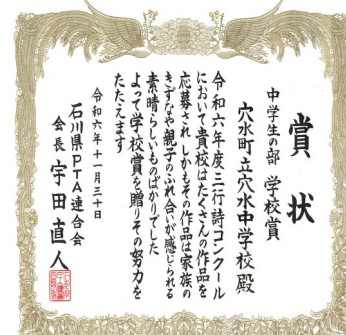 賞状
中学生の部 学校賞
穴水町立穴水中学校殿
令和六年度三行詩コンクール
において貴校はたくさんの作品を
応募され しかもその作品は家族の
きずなや親子のふれ合いが感じられる
素晴らしいものばかりでした
よって学校賞を贈りその努力を
たたえます
令和六年十一月三十日
石川県PTA連合会
会長 宇田直人